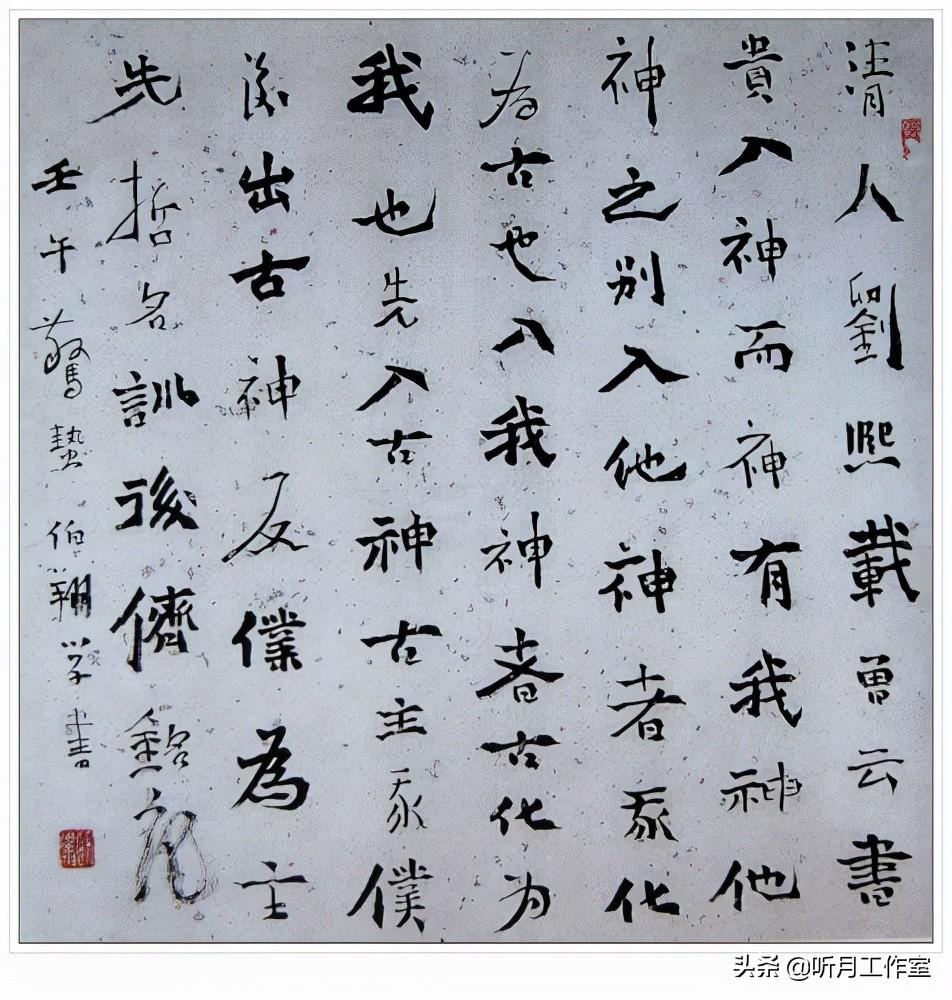 清人劉熙載曾云書
貴入神而神有我神他
神之别入他神者我化
为古也入我神者古化为
我也先入古神古主我僕
後出古神反僕為主
先哲名訓後儕
壬午驚蟄伯翔学書
头条 @听月工作室